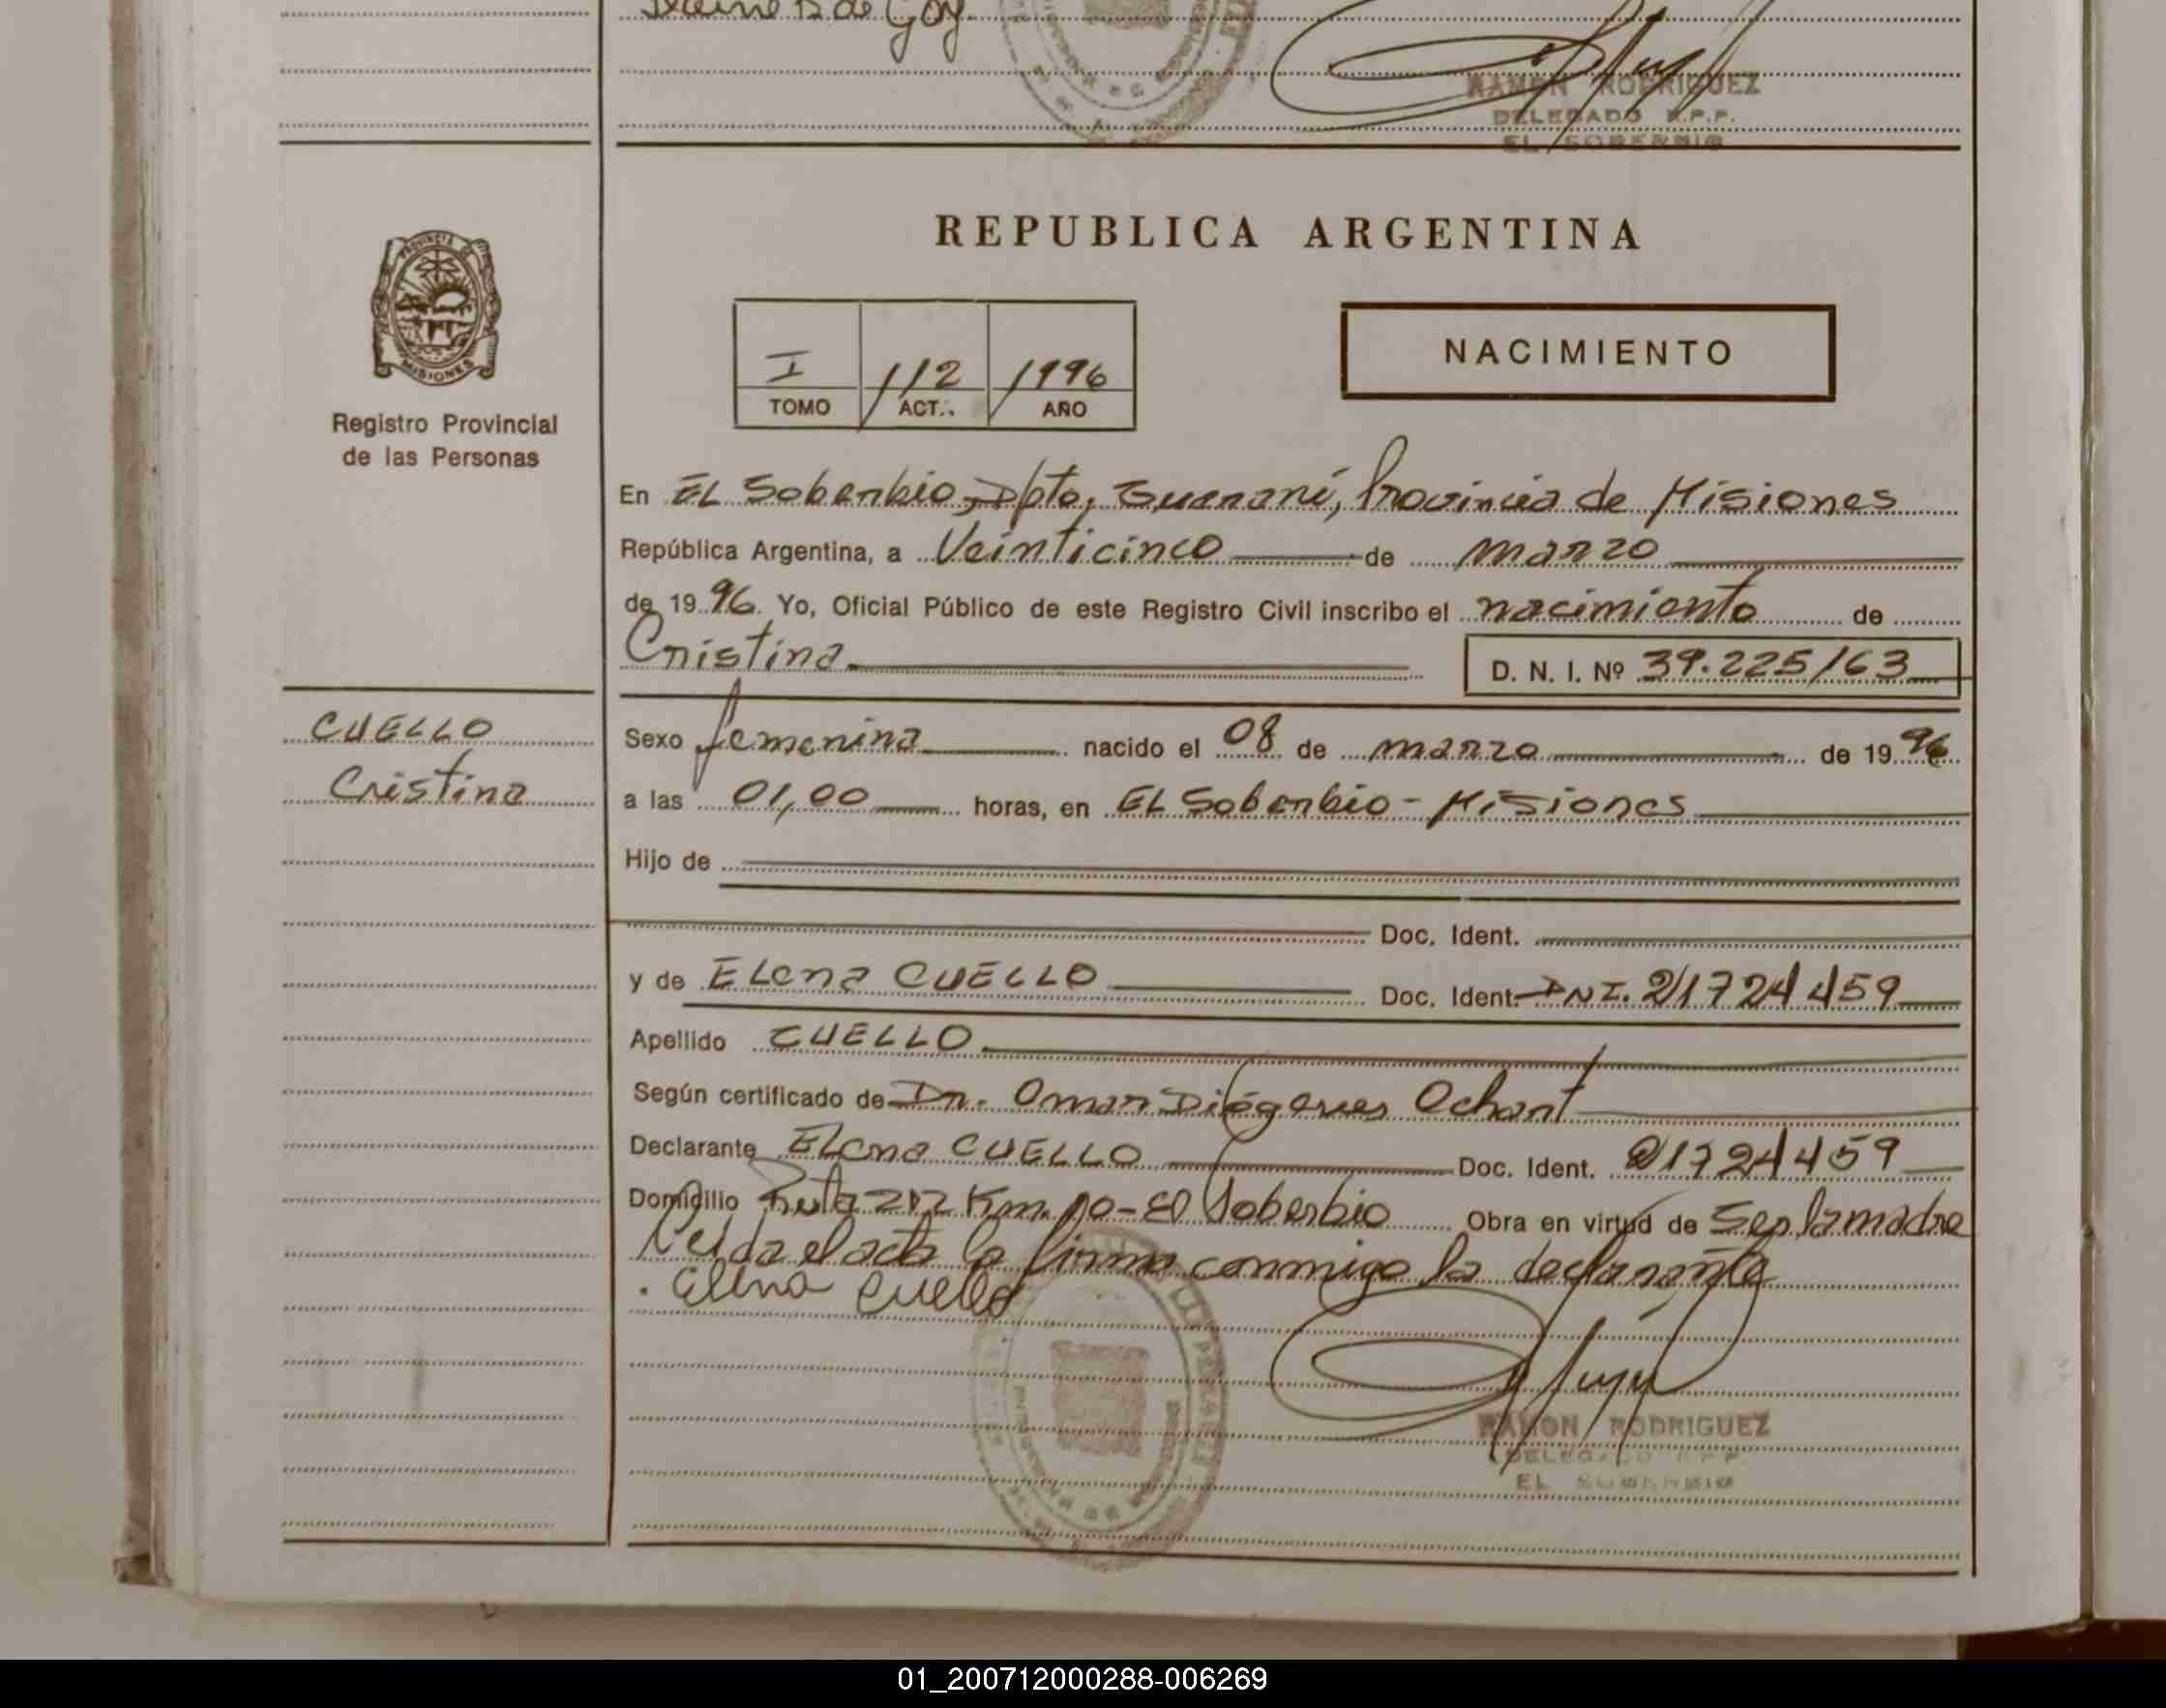 de Goy
RAMON RODRIGUEZ
DELEGADO R.P.P.
EL SOBERBIO
PROVINCIA
MISIONES
Registro Provincial
de las Personas
REPUBLICA ARGENTINA
I 112 1996
TOMO ACT. AÑO
NACIMIENTO
En EL Soberbio, Dpto, Guaraní, Provincia de Misiones
República Argentina, a Veinticinco de marzo
de 1996. Yo, Oficial Público de este Registro Civil inscribo el nacimiento de
Cristina D. N. I. Nº 39.225163
CUELLO
Cristina
Sexo femenina nacido el 08 de marzo de 1996
a las 01,00 horas, en EL Soberbio - Misiones
Hijo de
Doc. Ident.
y de ELena CUELLO Doc. Ident. DNI. 21724459
Apellido CUELLO
Según certificado de Dr. Omar Diógenes Ochant
Declarante ELena CUELLO Doc. Ident. 21724459
Domicilio Ruta 212 Km. 10 - El Soberbio Obra en virtud de Ser la madre
Leida el acta la firma conmigo la declarante
. Elena Cuello
RAMON RODRIGUEZ
DELEGADO R.P.P.
EL SOBERBIO
01_200712000288-006269